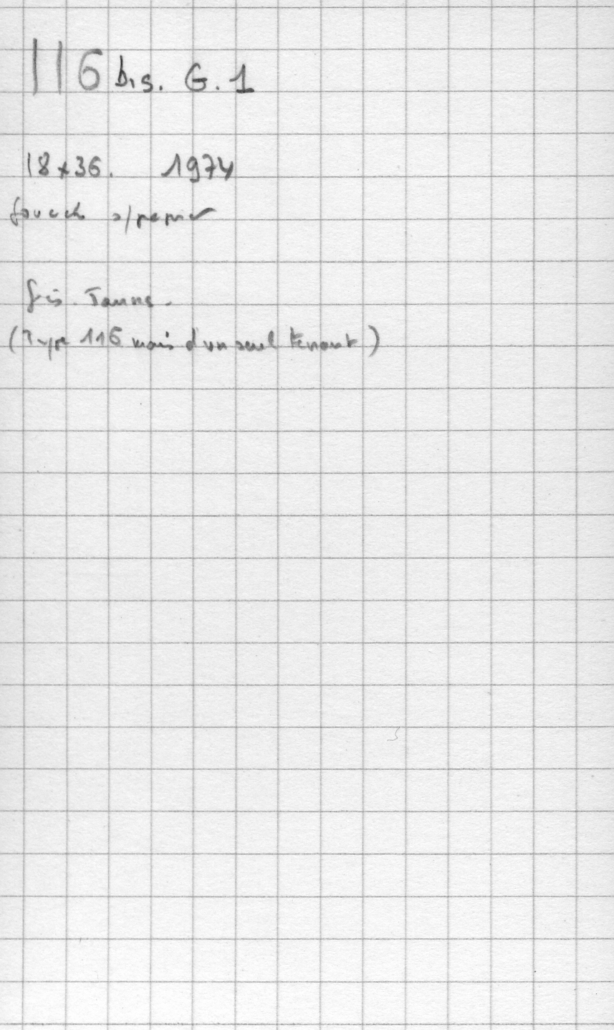 116 bis. G.1
18x36. 1974
Gouache s/papier
Gris. Jaune.
(Type 116 mais d'un seul tenant)